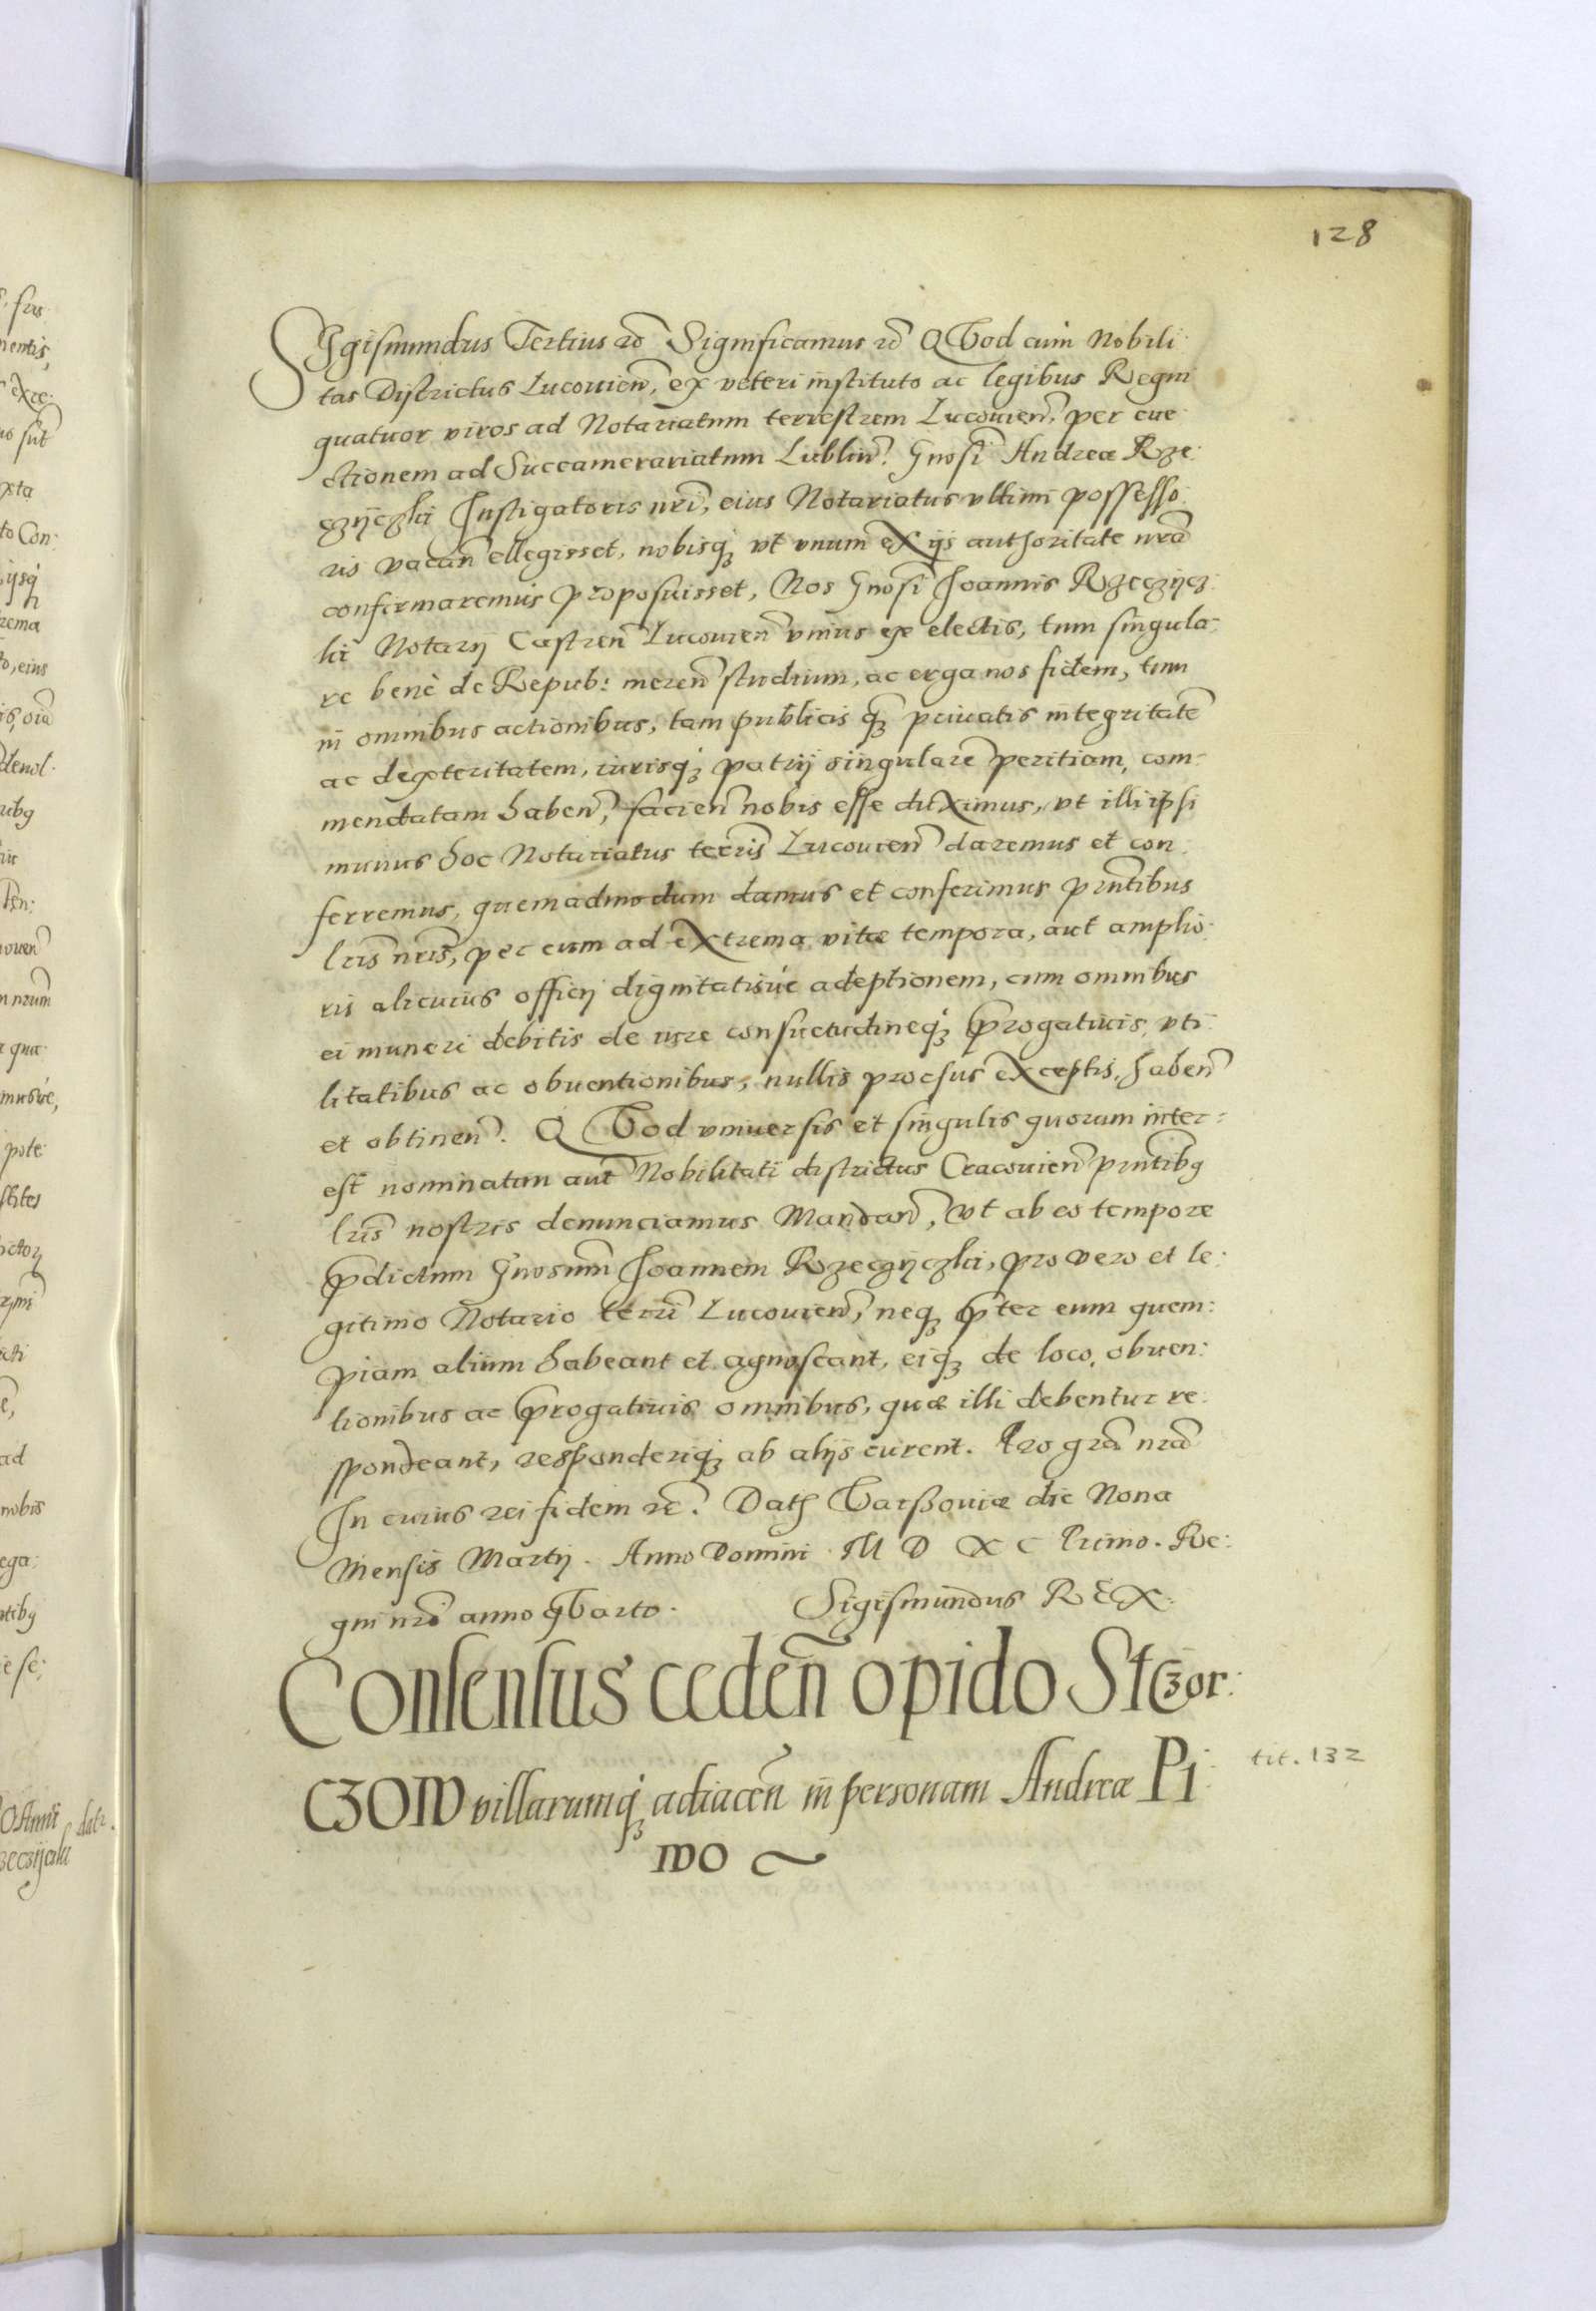 128
SIgismundus Tertius rc̃ Significamus rc̃ QVod cum Nobili
tas Districtus Lucouien̄, ex veteri instituto ac legibus Regni
quatuor viros ad Notariatum terrestrem Lucouien̄, per eue
ctionem ad Succamerariatum Lublin̄. Gn̄osi Andreæ Rze:
czÿczki Instigatoris nr̄i, eius Notariatus vltimi possesso:
ris vacan̄ ellegisset, nobisq3 vt vnum ex ijs authoritate nr̄a
confirmaremus proposuisset, Nos Gn̄osi Joannis Rzeczÿcz:
ki Notarij Castren̄ Lucouien̄ vnius ex electis, tum singula:
re benè de Repub: meren̄ studium, ac erga nos fidem, tum
in omnibus actionibus, tam publicis q̄3 priuatis integritatē
ac dexteritatem, iurisq3 patrij singularē peritiam, com:
mendatam haben̄, facien̄ nobis esse duximus, vt illi ipsi
munus hoc Notariatus terr̄is Lucouien̄ daremus et con:
ferremus, quemadmodum damus et conferimus pr̄ntibus
lr̄is nr̄is, per eum ad extrema vitæ tempora, aut amplio:
ris alicuius officij dignitatisúe adeptionem, cum omnibus
ei muneri debitis de iure consuetudineq3 p̄rogatiuis, vti:
litatibus ac obuentionibus, nullis prorsus exceptis, haben̄
et obtinen̄. QVod vniuersis et singulis quorum inter:
est nominatim aut̄ Nobilitati districtus Cracouien̄ pr̄ntibq
lr̄is nostris denunciamus Mandan̄, Vt ab eo tempore
p̄dictum Gn̄osum Joannem Rzeczÿczki, pro vero et le:
gitimo Notario terr̄i Lucouien̄, neq3 p̄ter eum quem:
piam alium habeant et agnoscant, eiq3 de loco, obuen:
tionibus ac p̄rogatiuis omnibus, quæ illi debentur re:
spondeant, responderiq3 ab alijs curent. Pro gr̄a nr̄a
In cuius rei fidem rc̄. Dat Varssouiæ die Nona
Mensis Martij. Anno Domini M D XC Primo. Re:
gni nr̄i anno qVarto. Sigismundus REX.
Consensus ceden̄ opido Stęzor:
CZOW villarumq3 adiacen̄ in personam Andreæ Pi:
tit. 132
WO